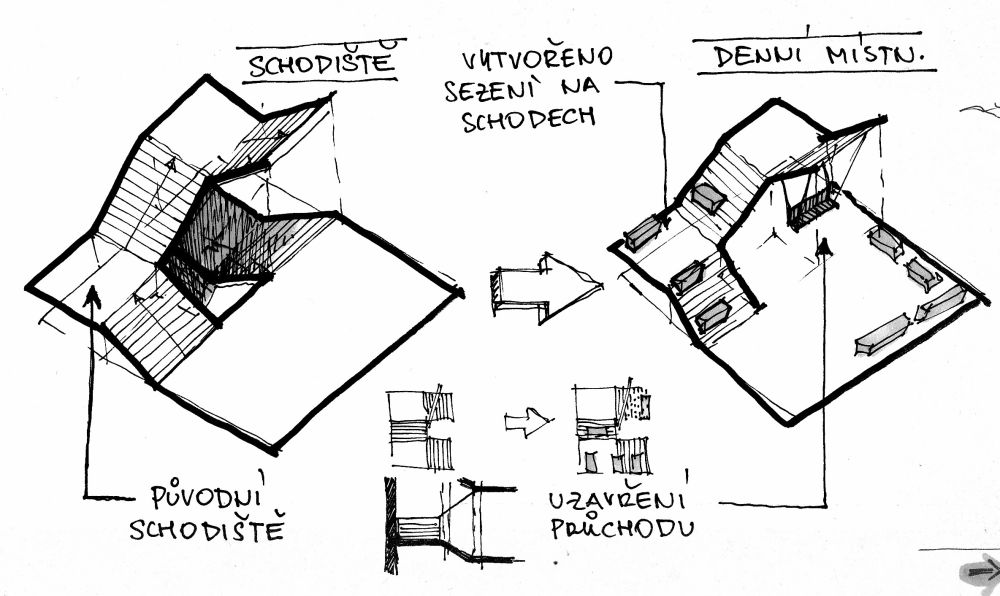 SCHODIŠTĚ
VYTVOŘENO
SEZENÍ NA
SCHODECH
DENNÍ MÍSTN.
PŮVODNÍ
SCHODIŠTĚ
UZAVŘENÍ
PRŮCHODU